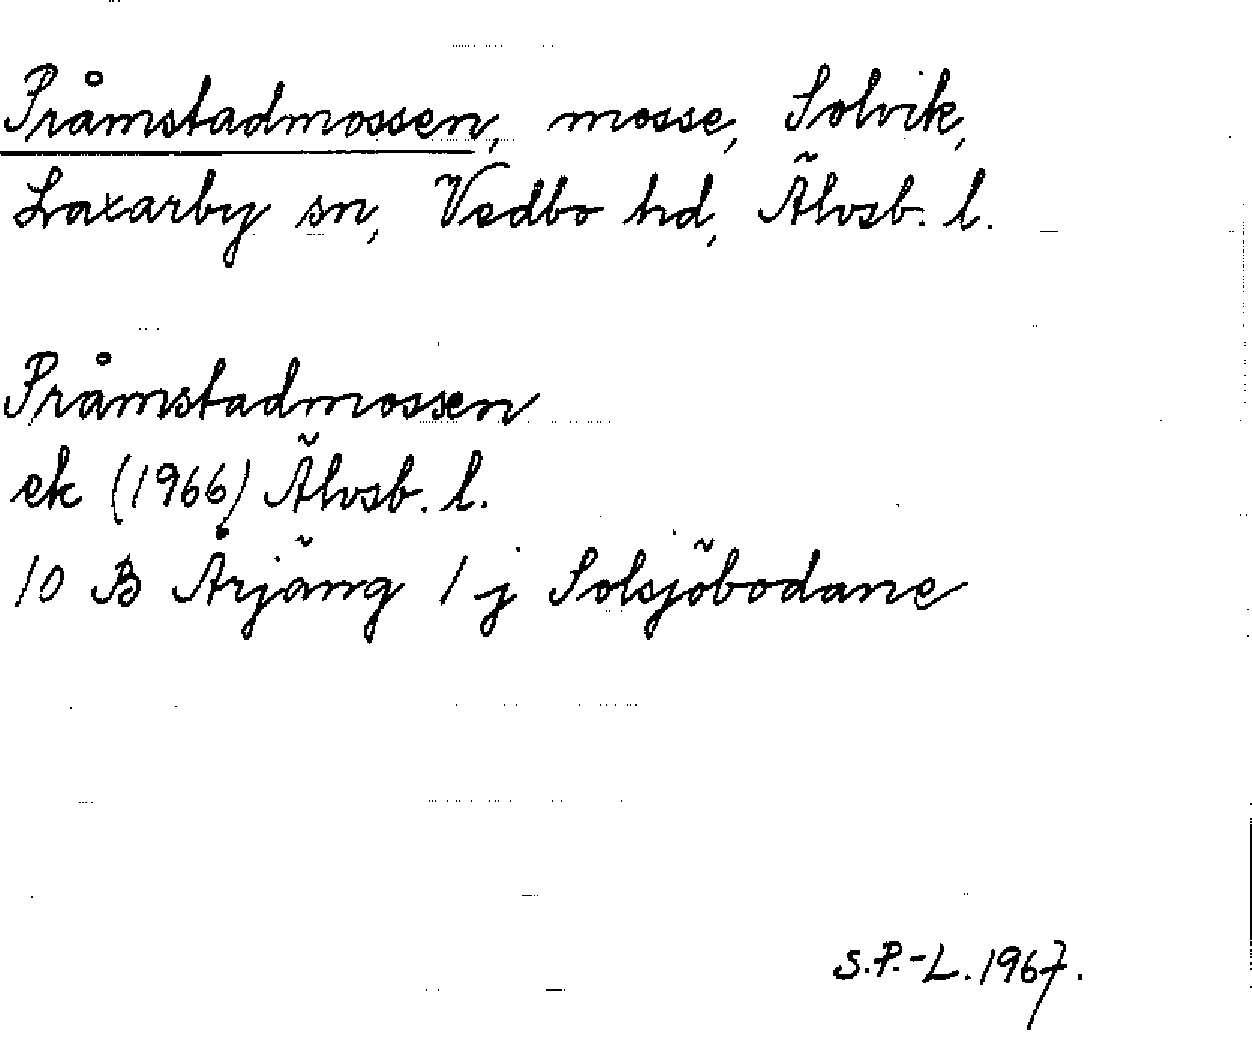 Pråmstadmossen, mosse, Solvik,
Laxarby sn, Vedbo hd, Älvsb. l.
Pråmstadmossen
ek (1966) Älvsb. l.
10 B Årjäng 1 j Solsjöbodane
S.P.-L. 1967.